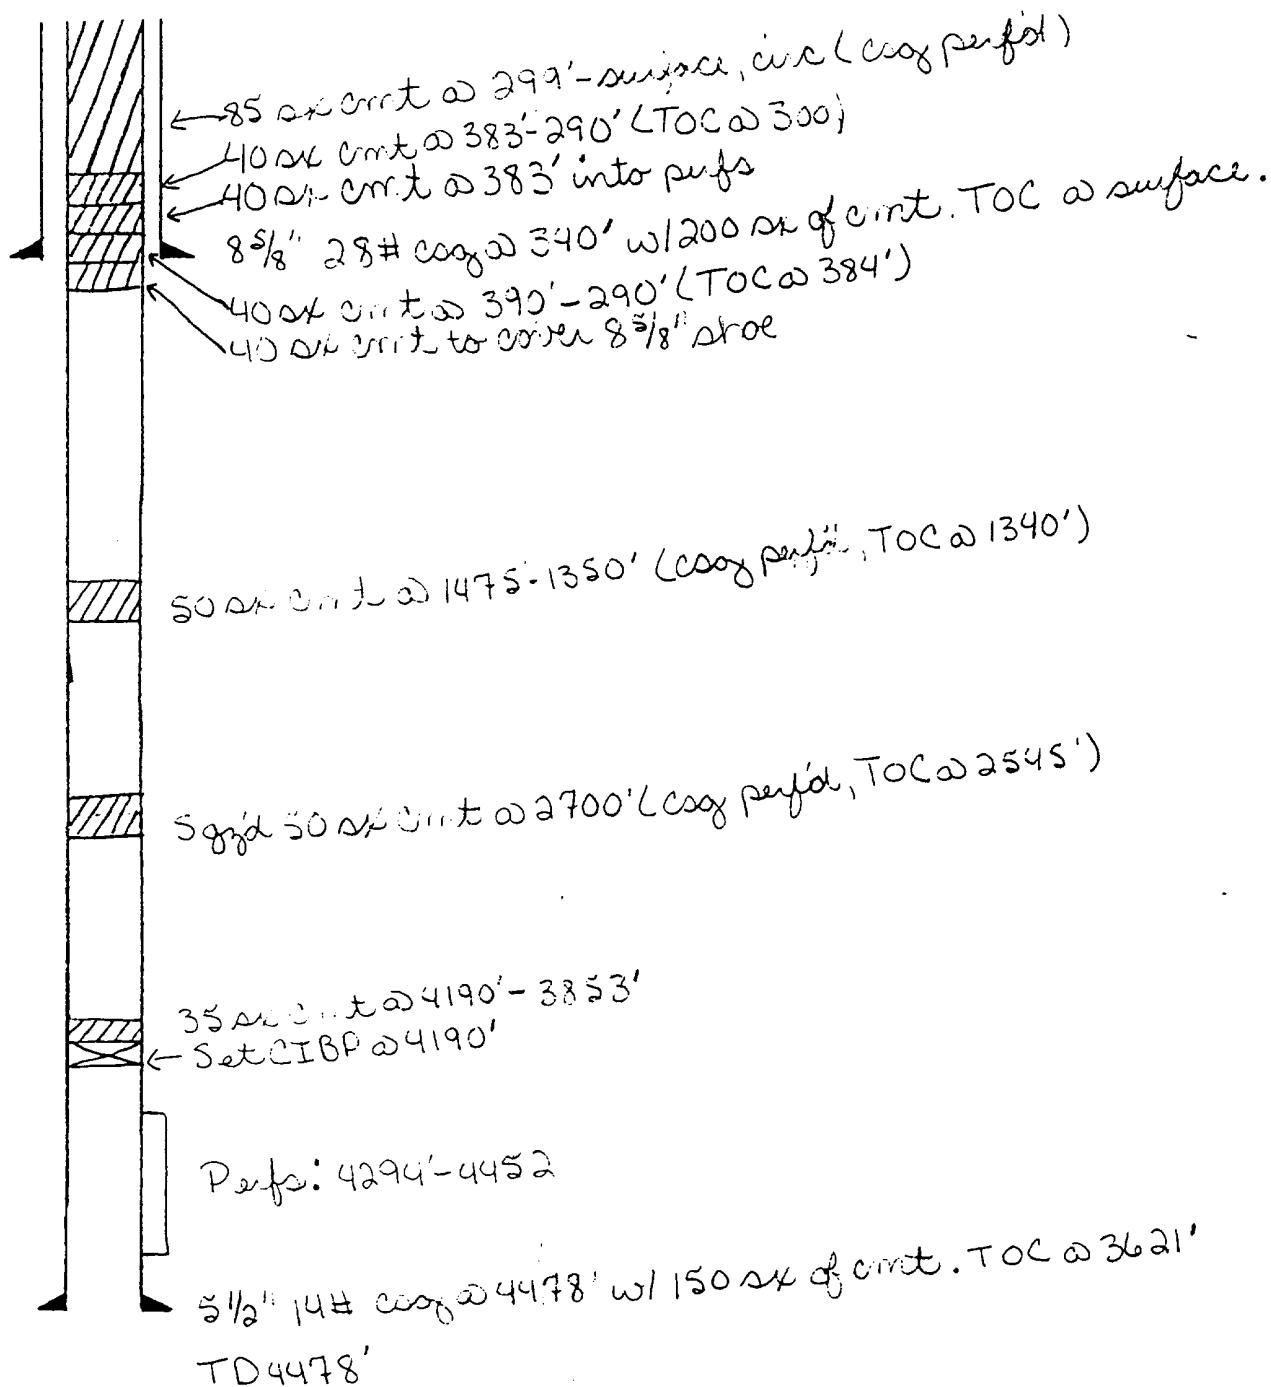 85 sx cmt @ 299'-surface, circ (csg perf'd)
40 sx cmt @ 383'-290' (TOC @ 300)
40 sx cmt @ 383' into perfs
8 5/8" 28# csg @ 340' w/200 sx of cmt. TOC @ surface.
40 sx cmt @ 390'-290' (TOC @ 384')
40 sx cmt to cover 8 5/8" shoe
50 sx cmt @ 1475-1350' (csg perf'd, TOC @ 1340')
Sqz'd 50 sx cmt @ 2700' (csg perf'd, TOC @ 2545')
35 sx cmt @ 4190'-3853'
Set CIBP @ 4190'
Perfs: 4294'-4452
5 1/2" 14# csg @ 4478' w/ 150 sx of cmt. TOC @ 3621'
TD 4478'